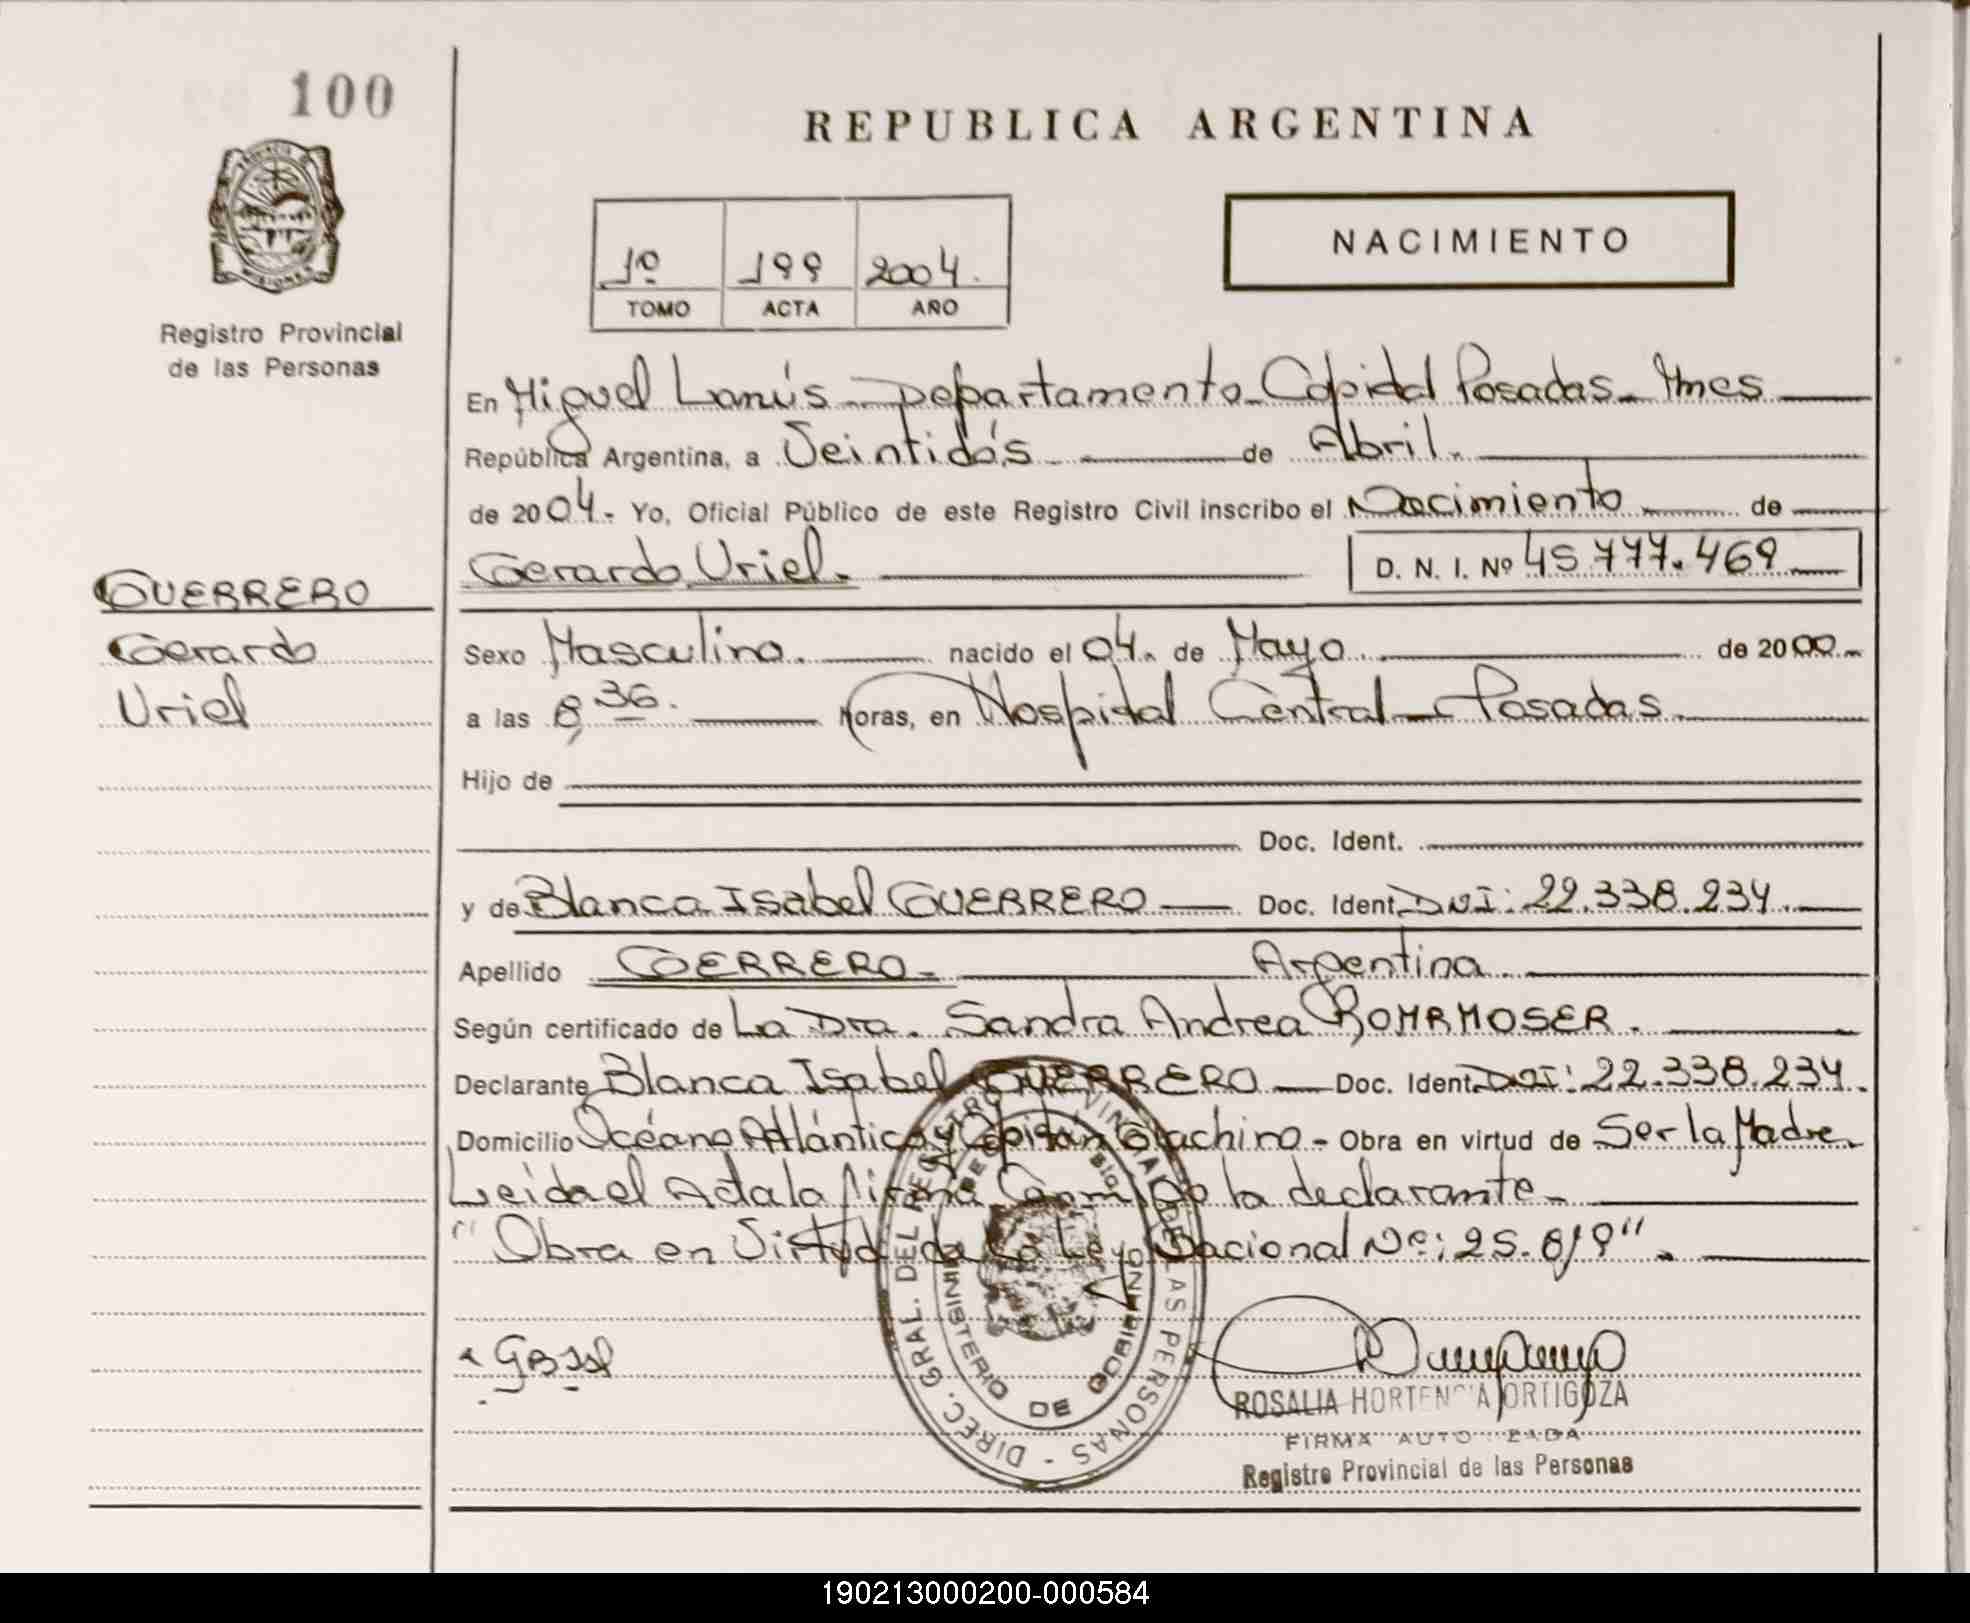 100
REPUBLICA ARGENTINA
1º 199 2004.
TOMO ACTA AÑO
NACIMIENTO
Registro Provincial
de las Personas
En Miguel Lanús - Departamento - Capital Posadas - Mnes
República Argentina, a Veintidós de Abril.
de 2004.- Yo, Oficial Público de este Registro Civil inscribo el Nacimiento de
Gerardo Uriel. D. N. I. Nº 45.777.469
GUERRERO
Gerardo
Uriel
Sexo Masculino. nacido el 04. de Mayo. de 2000.-
a las 8,36. horas, en Hospital Central - Posadas.
Hijo de
Doc. Ident.
y de Blanca Isabel GUERRERO Doc. Ident. DNI: 22.338.234.
Apellido GUERRERO.- Argentina.
Según certificado de La Dra. Sandra Andrea ROHRMOSER.
Declarante Blanca Isabel GUERRERO Doc. Ident. DNI: 22.338.234.
Domicilio Océano Atlántico y Capitán Giachino - Obra en virtud de Ser la Madre
Leida el Acta la firma Conmigo la declarante.
"Obra en Virtud de la Ley Nacional Nº: 25.819".
DIREC. GRAL. DEL REGISTRO PROVINCIAL DE LAS PERSONAS -
MINISTERIO DE GOBIERNO
ROSALIA HORTENCIA ORTIGOZA
FIRMA AUTORIZADA
Registro Provincial de las Personas
190213000200-000584